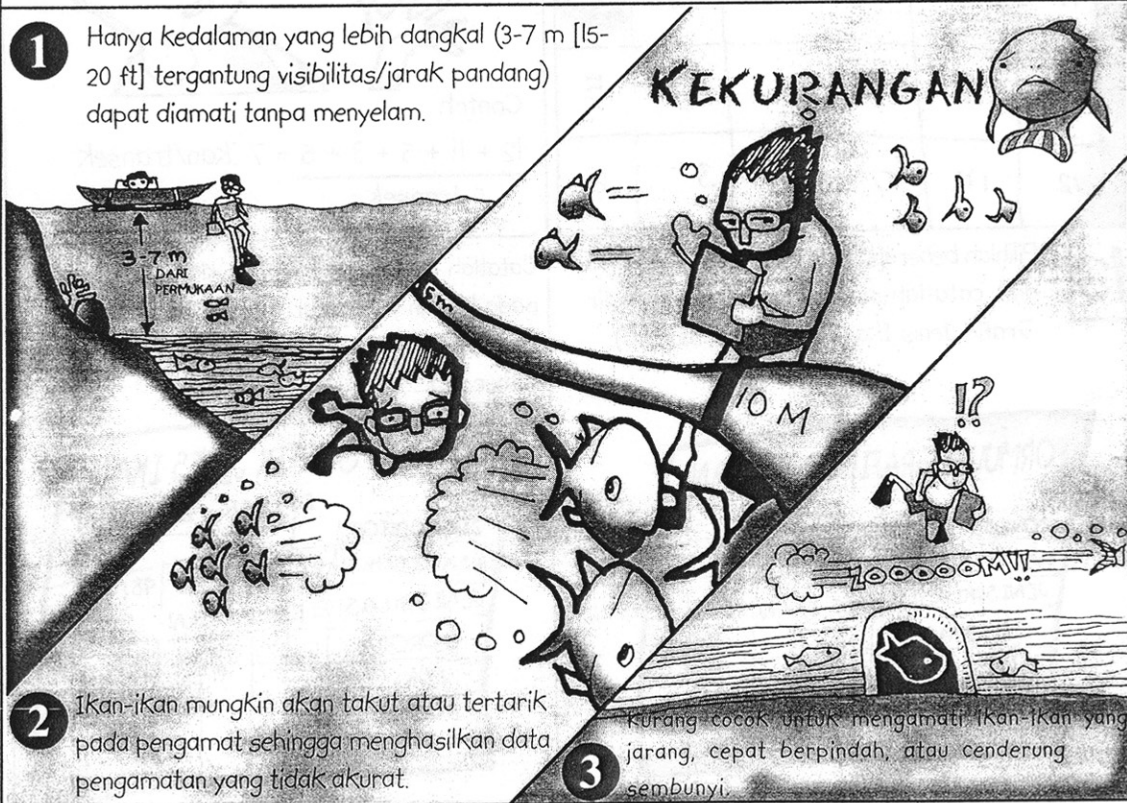 1
Hanya kedalaman yang lebih dangkal (3-7 m [15-
20 ft] tergantung visibilitas/jarak pandang)
dapat diamati tanpa menyelam.
KEKURANGAN
3-7 m
DARI
PERMUKAAN
5m
10 M
!?
ZOOOOOM!!
2
Ikan-ikan mungkin akan takut atau tertarik
pada pengamat sehingga menghasilkan data
pengamatan yang tidak akurat.
3
Kurang cocok untuk mengamati ikan-ikan yang
jarang, cepat berpindah, atau cenderung
sembunyi.